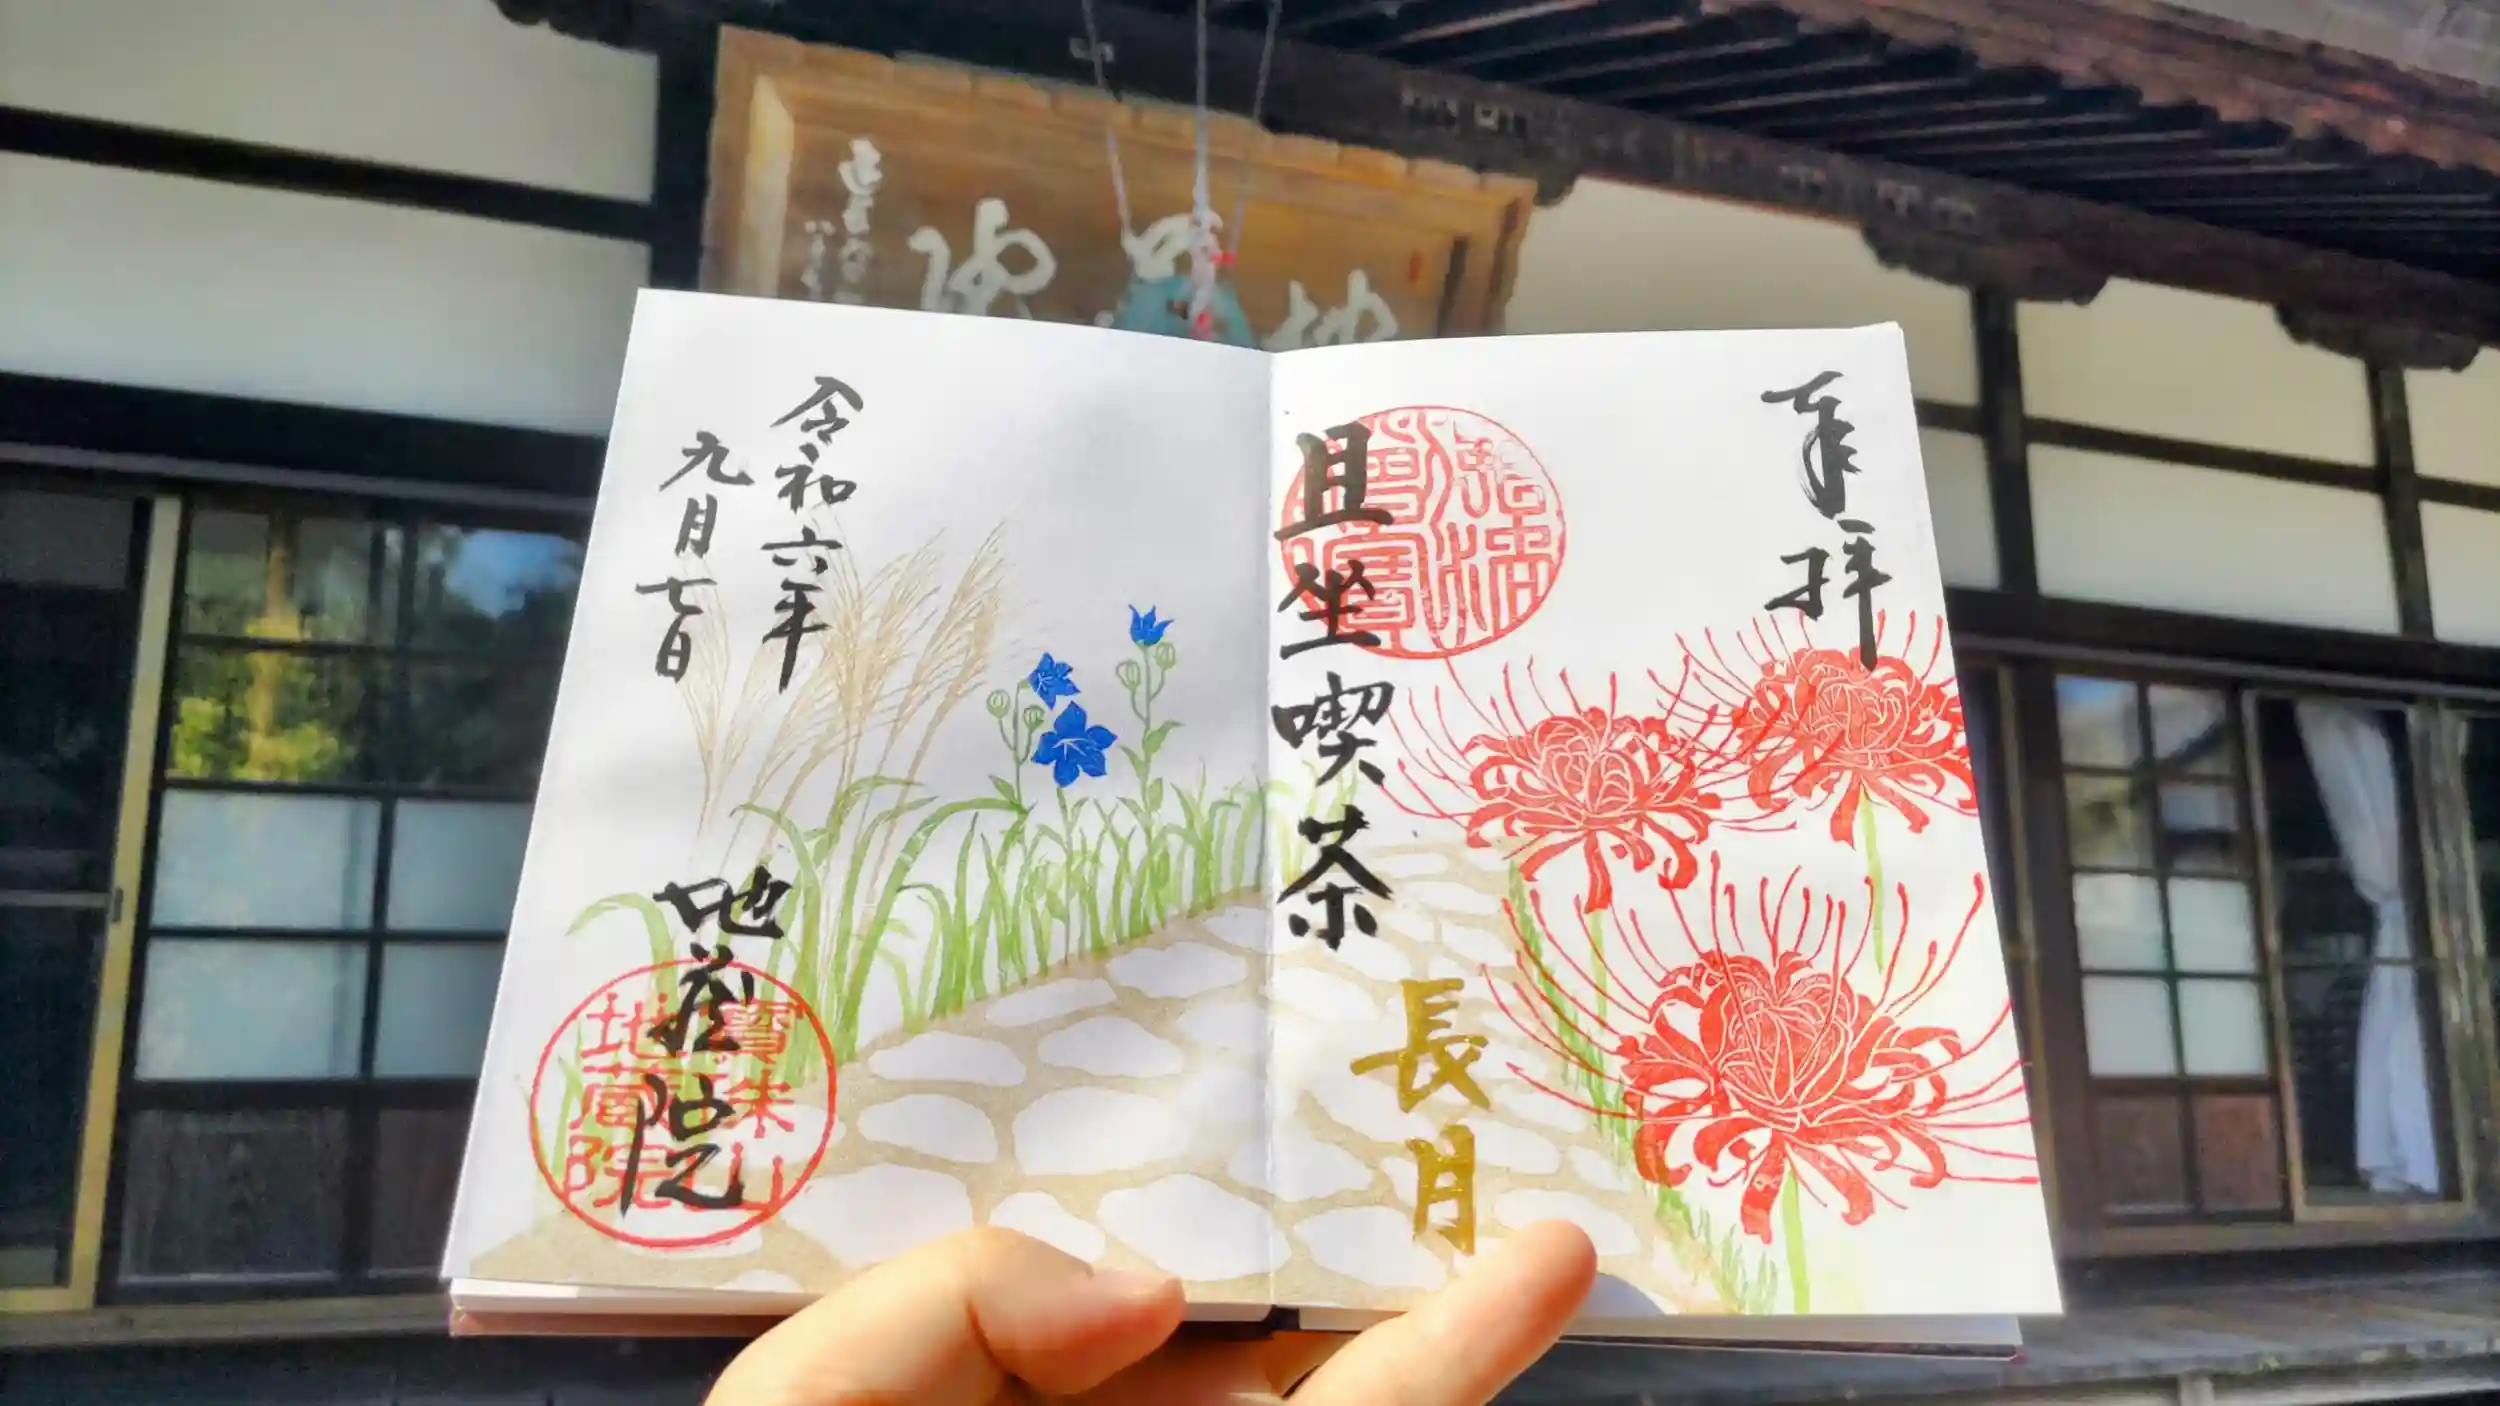 奉拝
佛法僧寳
且坐喫茶
長月
令和六年
九月七日
地蔵院
寳珠山
地蔵院